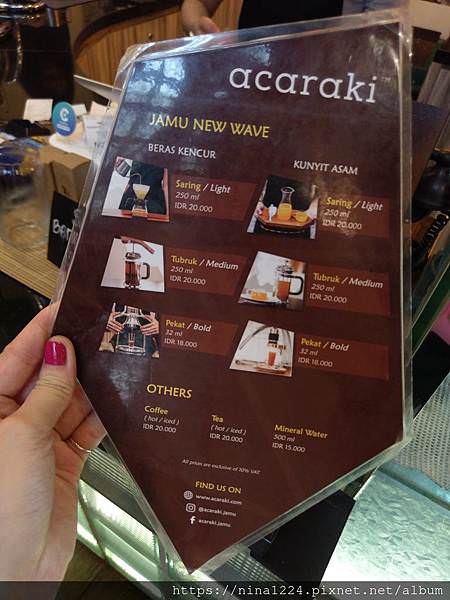 acaraki™
JAMU NEW WAVE
BERAS KENCUR
Saring / Light
250 ml
IDR 20.000
Tubruk / Medium
250 ml
IDR 20.000
Pekat / Bold
32 ml
IDR 18.000
KUNYIT ASAM
Saring / Light
250 ml
IDR 20.000
Tubruk / Medium
250 ml
IDR 20.000
Pekat / Bold
32 ml
IDR 18.000
OTHERS
Coffee
(hot / iced)
IDR 20.000
Tea
(hot / iced)
IDR 20.000
Mineral Water
500 ml
IDR 15.000
All prices are exclusive of 10% VAT
FIND US ON
www.acaraki.com
@acaraki.jamu
acaraki.jamu
https://nina1224.pixnet.net/album